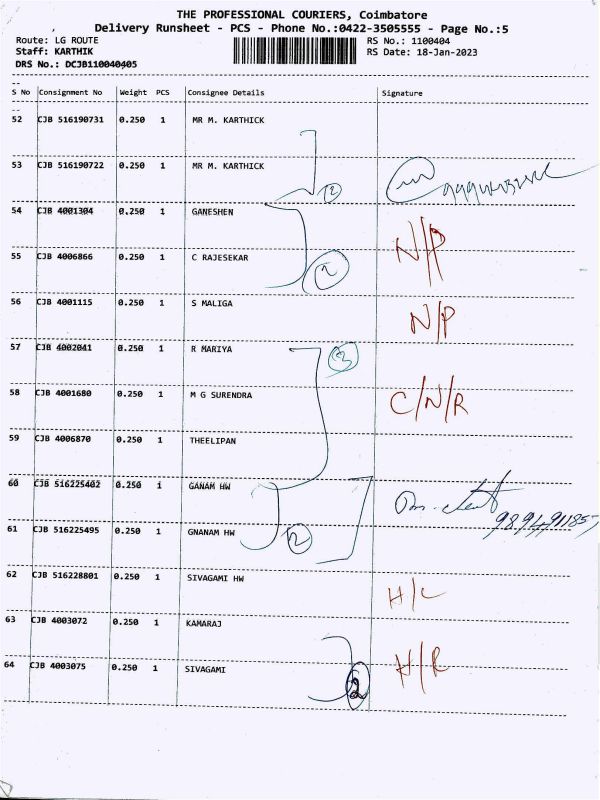 THE PROFESSIONAL COURIERS, Coimbatore
Delivery Runsheet - PCS - Phone No.:0422-3505555 - Page No.:5
Route: LG ROUTE RS No.: 1100404
Staff: KARTHIK RS Date: 18-Jan-2023
DRS No.: DCJB110040405
S No Consignment No Weight PCS Consignee Details Signature
52 CJB 516190731 0.250 1 MR M. KARTHICK
53 CJB 516190722 0.250 1 MR M. KARTHICK
2
54 CJB 4001304 0.250 1 GANESHEN
N/P
55 CJB 4006866 0.250 1 C RAJESEKAR
2
56 CJB 4001115 0.250 1 S MALIGA
N/P
57 CJB 4002041 0.250 1 R MARIYA
3
58 CJB 4001680 0.250 1 M G SURENDRA
C/N/R
59 CJB 4006870 0.250 1 THEELIPAN
60 CJB 516225402 0.250 1 GANAM HW
61 CJB 516225495 0.250 1 GNANAM HW
2
62 CJB 516228801 0.250 1 SIVAGAMI HW
H/C
63 CJB 4003072 0.250 1 KAMARAJ
64 CJB 4003075 0.250 1 SIVAGAMI
H/R
2